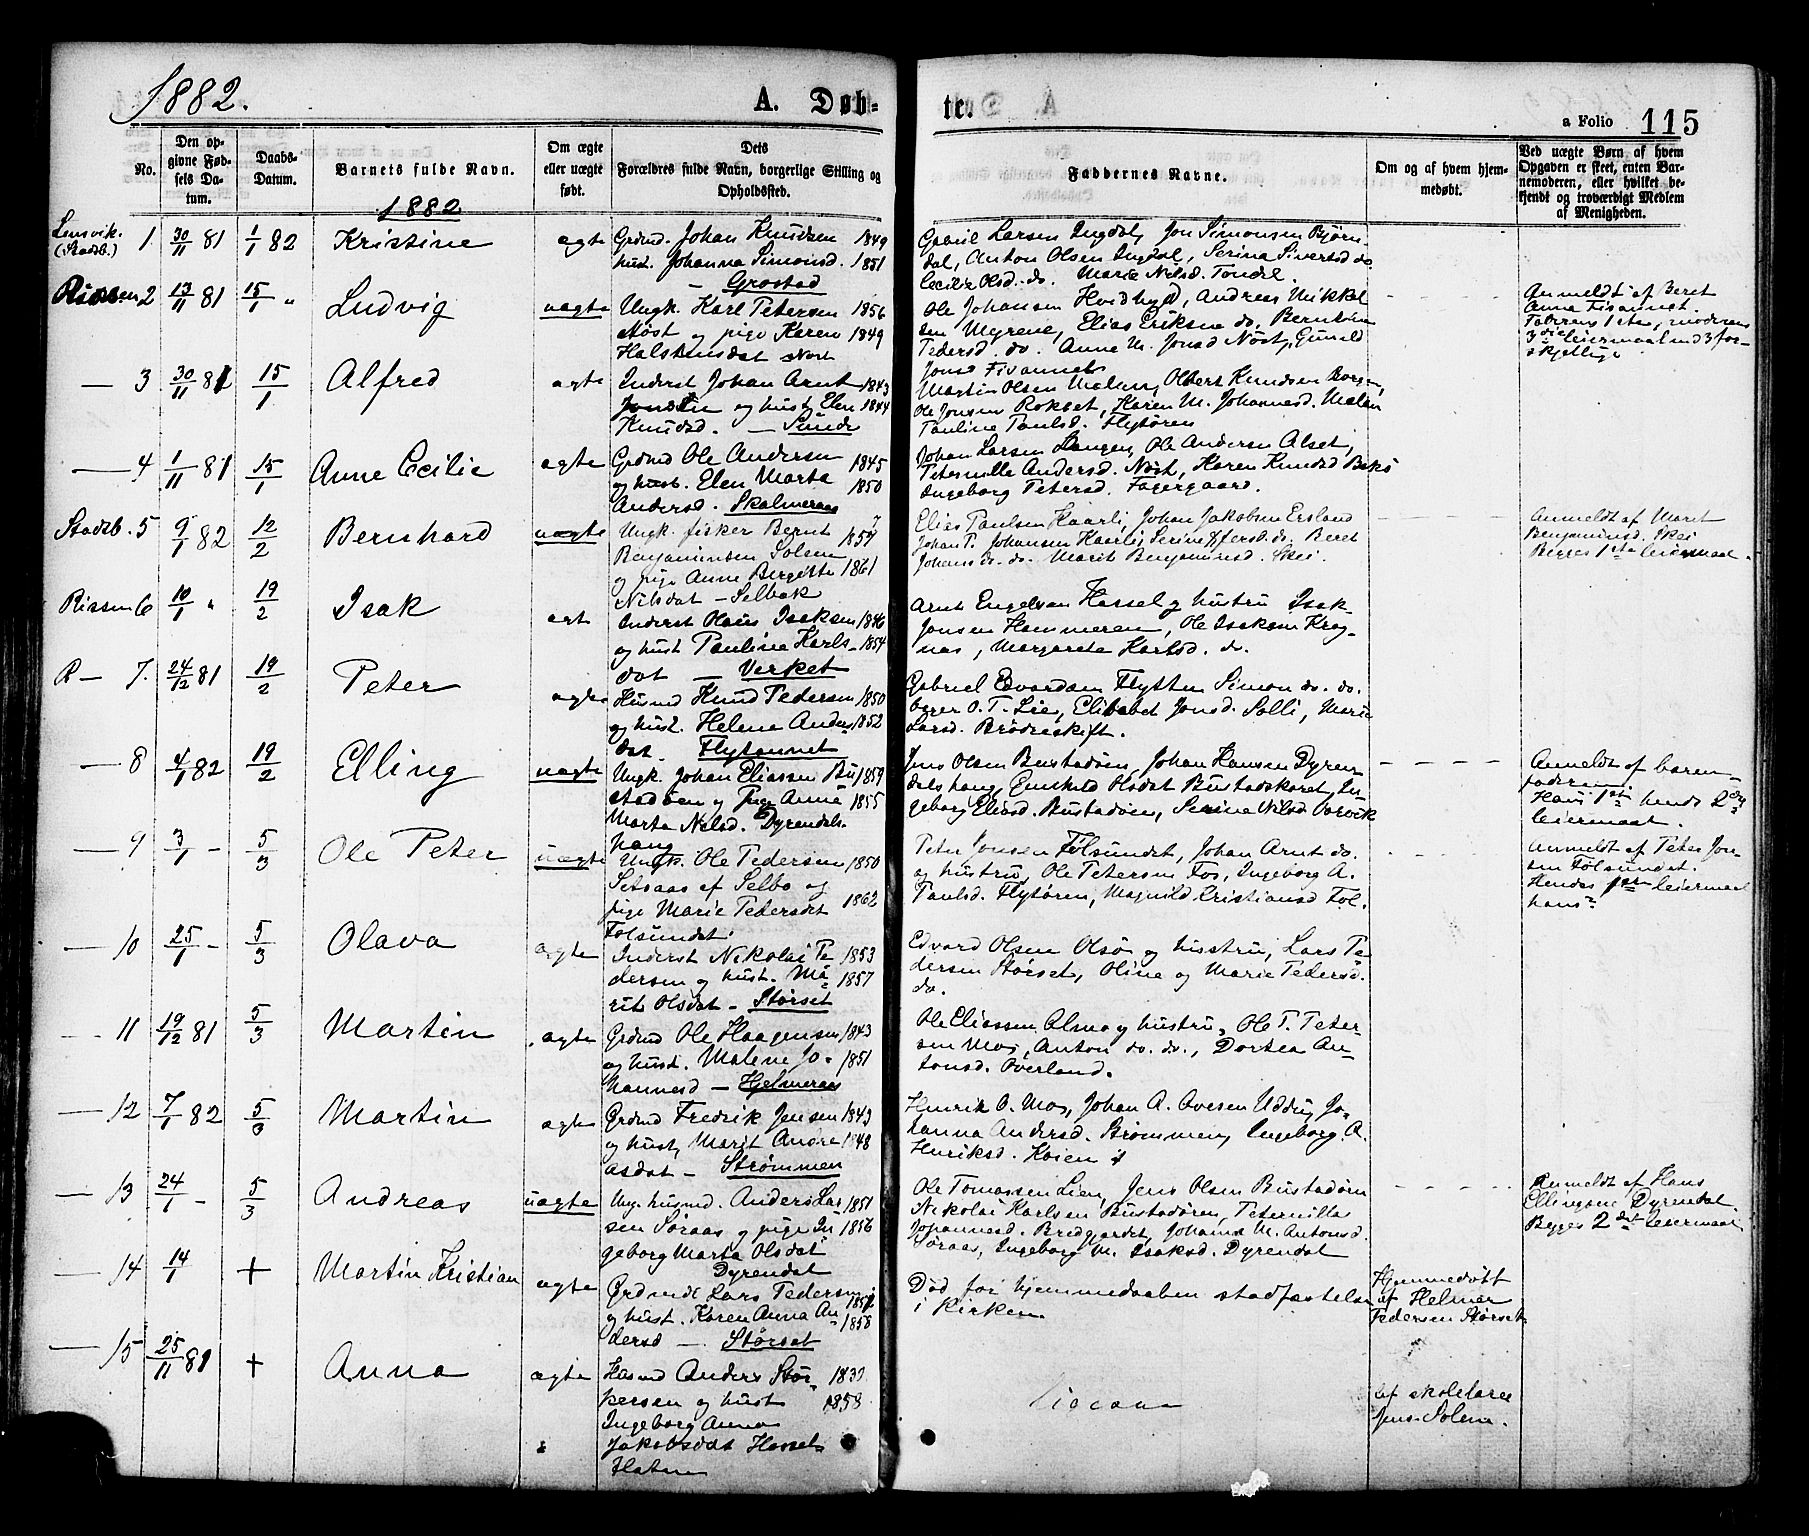 1882.
A. Døb-
te.
a Folio 115
No.
Den op-
givne Fød-
sels Da-
tum.
Daabs-
Datum.
Barnets fulde Navn.
Om ægte
eller uægte
født.
Dets
Forældres fulde Navn, borgerlige Stilling og
Opholdssted.
Faddernes Navne.
Om og af hvem hjem-
medøbt.
Ved uægte Børn af hvem
Opgaven er skeet, enten Bar-
nemoderen, eller hvilket be-
kjendt og troværdigt Medlem
af Menigheden.
1882
Lensvik. (Stadsb.) 1. 30/11 81 1/1 82 Kristine ægte
Grdmd. Johan Knudsen 1849
hust. Johanna Simonsd. 1851
— Grostad
Gabriel Larsen Ingdal, Jon Simonsen Bjørn-
dal, Anton Olsen Ingdal, Serina Sivertsd do
Cecilie Olsd. do. Marie Nilsd. Tondel.
Rissen 2 13/11 81 15/1 " Ludvig uægte
Ungk. Karl Petersen 1856
Nøst og pige Karen 1849
Halstensdat
Ole Johansen Hvidbyd, Andreas Mikkel
sen Myrene, Elias Eriksen do. Bernhom
Pedersd. do. Anne M. Jonsd Nøst, Gunild
Jonsd Fivannet
Anmeldt af Beret
Anna Fivannet.
Faderens 1ste, moderens
3die leiermaal med 3 for-
skjellige
— 3 30/11 81 15/1 Alfred ægte
Inderst Johan Arnt 1843
Jonsen og hust Elen 1844
Knudsd. — Sund
Martin Olsen Malan, Olbert Knudsen Borgen,
Ole Jonsen Rokset, Karen M. Johannesd. Malan
Pauline Paulsd. Flytøren
— 4 1/11 81 15/1 Anne Cecilie ægte
Grdmd Ole Andersen 1845
og husb. Elen Marta 1850
Andersd. Skalmeraas
Johan Larsen Langen, Ole Andersen Alset,
Peternille Andersd. Nøst, Karen Knudsd Baks
Ingeborg Petersd. Fagergaard.
Stadsb. 5 9/1 82 12/2 Bernhard uægte
Ungk. fisker Bernt 1857
Benjaminsen Solem
og pige Anne Bergitte 1861
Nilsdat — Selbak
Elias Paulsen Haarli, Johan Jakobsen Ersland
Johan P. Johansen Haarli, Serine do. Beret
Johansd. do. Marit Benjaminsd. Skei.
Anmeldt af Maret
Benjaminsd. Skei
Begges 1ste leiermaal.
Rissen 6 10/1 " 19/2 Isak ægt
Inderst Olaus Isaksen 1846
og hust Paulina Karls- 1854
dat — Verket
Arnt Engelsen Hassel og hustru Isak
Jonsen Hammeren, Ole Isaksen Krog-
nes, Margareta Karlsd. do.
R — 7. 24/12 81 19/2 Peter ægte
Husmd Knud Pedersen 1850
og hust. Helena Anders 1852
dat. Flytannet
Gabriel Edvardsen Flytten Simon do. do.
O. T. Lie, Elisabet Jonsd. Solli, Marie
Larsd. Brødreskift.
— 8 4/1 82 19/2 Elling uægte
Ungk. Johan Eliassen Bu 1859
stadøen og Pige Anna 1855
Marta Nilsd. Dyrendals-
haug
Jens Olsen Bustadøen, Johan Hansen Dyren-
dalshaug, Gunhild Olsdat Bustadskaret, In-
geborg Eliasd. Bustadøen, Serine Nilsd Vorvik
Anmeldt af barne-
faderen
Hans 1ste, hendes 2det
leiermaal.
— 9 3/1 — 5/3 Ole Peter uægte
Ungk. Ole Pedersen 1850
Setsaas af Selbo og
pige Marie Pedersdat 1862
Følsundet.
Peter Jonsen Følsundet, Johan Arnt do.
og hustru, Ole Petersen Fos, Ingeborg A.
Paulsd. Flytøren, Magnild Cristiansd Føl.
Anmeldt af Peter Jon-
sen Følsundet.
Hendes 1ste leiermaal
hans?
— 10 25/1 — 5/3 Olava ægte
Inderst Nikolai Pe 1853
dersen og hust. Ma- 1857
rit Olsdat — Størset
Edvard Olsen Olsø og hustru, Lars Pe
dersen Størset, Oline og Marie Pedersd.
do.
— 11 19/12 81 5/3 Martin ægte
Grdmd Ole Haagensen 1843
og hust. Malene Jo- 1851
hannesd — Hjelmeraas
Ole Eliassen Alma og hustru, Ole T. Peter-
sen Mos, Anton do. do., Dortea An-
tonsd. Overland.
— 12 7/1 82 5/3 Martin ægte
Grdmd Fredrik Jensen 1843
og hust, Marit Andre 1848
asdat — Strømmen
Henrik O. Mos, Johan A. Ovesen Uddu, Jo-
hanna Andersd. Strømmen, Ingeborg A.
Henriksd. Kvien
— 13 24/1 — 5/3 Andreas uægte
Ung. husmd. Anders Lar 1851
sen Søraas og pige In 1856
geborg Marta Olsdat
Dyrendal
Ole Tomassen Lien, Jens Olsen Bustadøen
Nikolai Karlsen Bustadøren, Peternilla
Johannesd. Bredgjerdet, Johanna M. Antonsd.
Søraas, Ingeborg M. Isaksd. Dyrendal
Anmeldt af Hans
Ellingsen Dyrendal
Begges 2det leiermaal
— 14 14/1 + Martin Kristian ægte
Grdmd Lars Pedersen
og hust. Karen Anna An- 1858
dersd — Størset
Død før hjemmedaaben stadfæstelse
i Kirken.
Hjemmedøbt
af Helmer
Pedersen Størset
— 15 25/11 81 + Anna ægte
Husmd Anders Stør-
kersen og hust 1858
Ingeborg Anna
Jakobsdat Hassel
Haten
af skolelærer
Jens Solem.